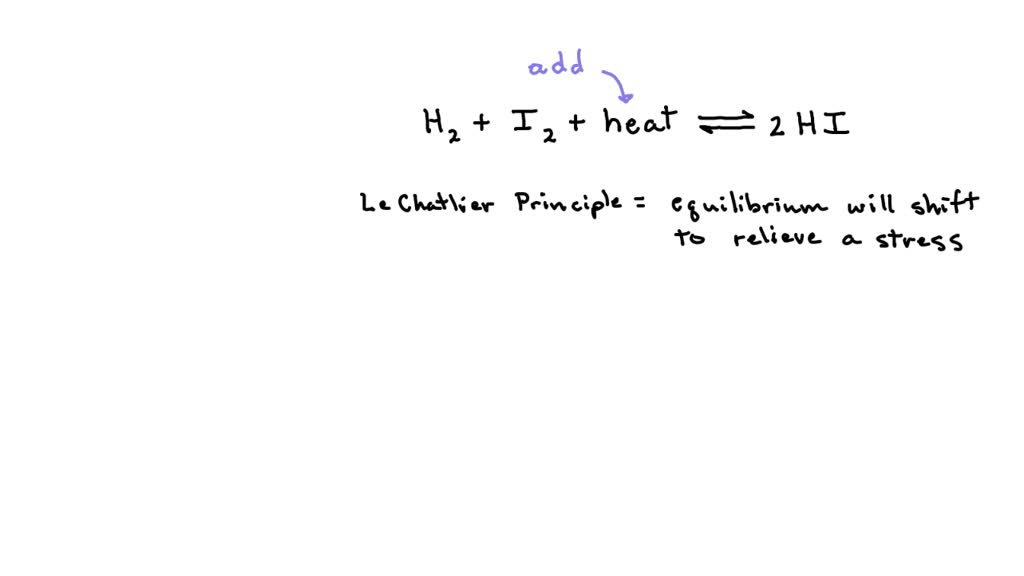 add
H₂ + I₂ + heat ⇌ 2 HI
Le Chatlier Principle = equilibrium will shift
to relieve a stress